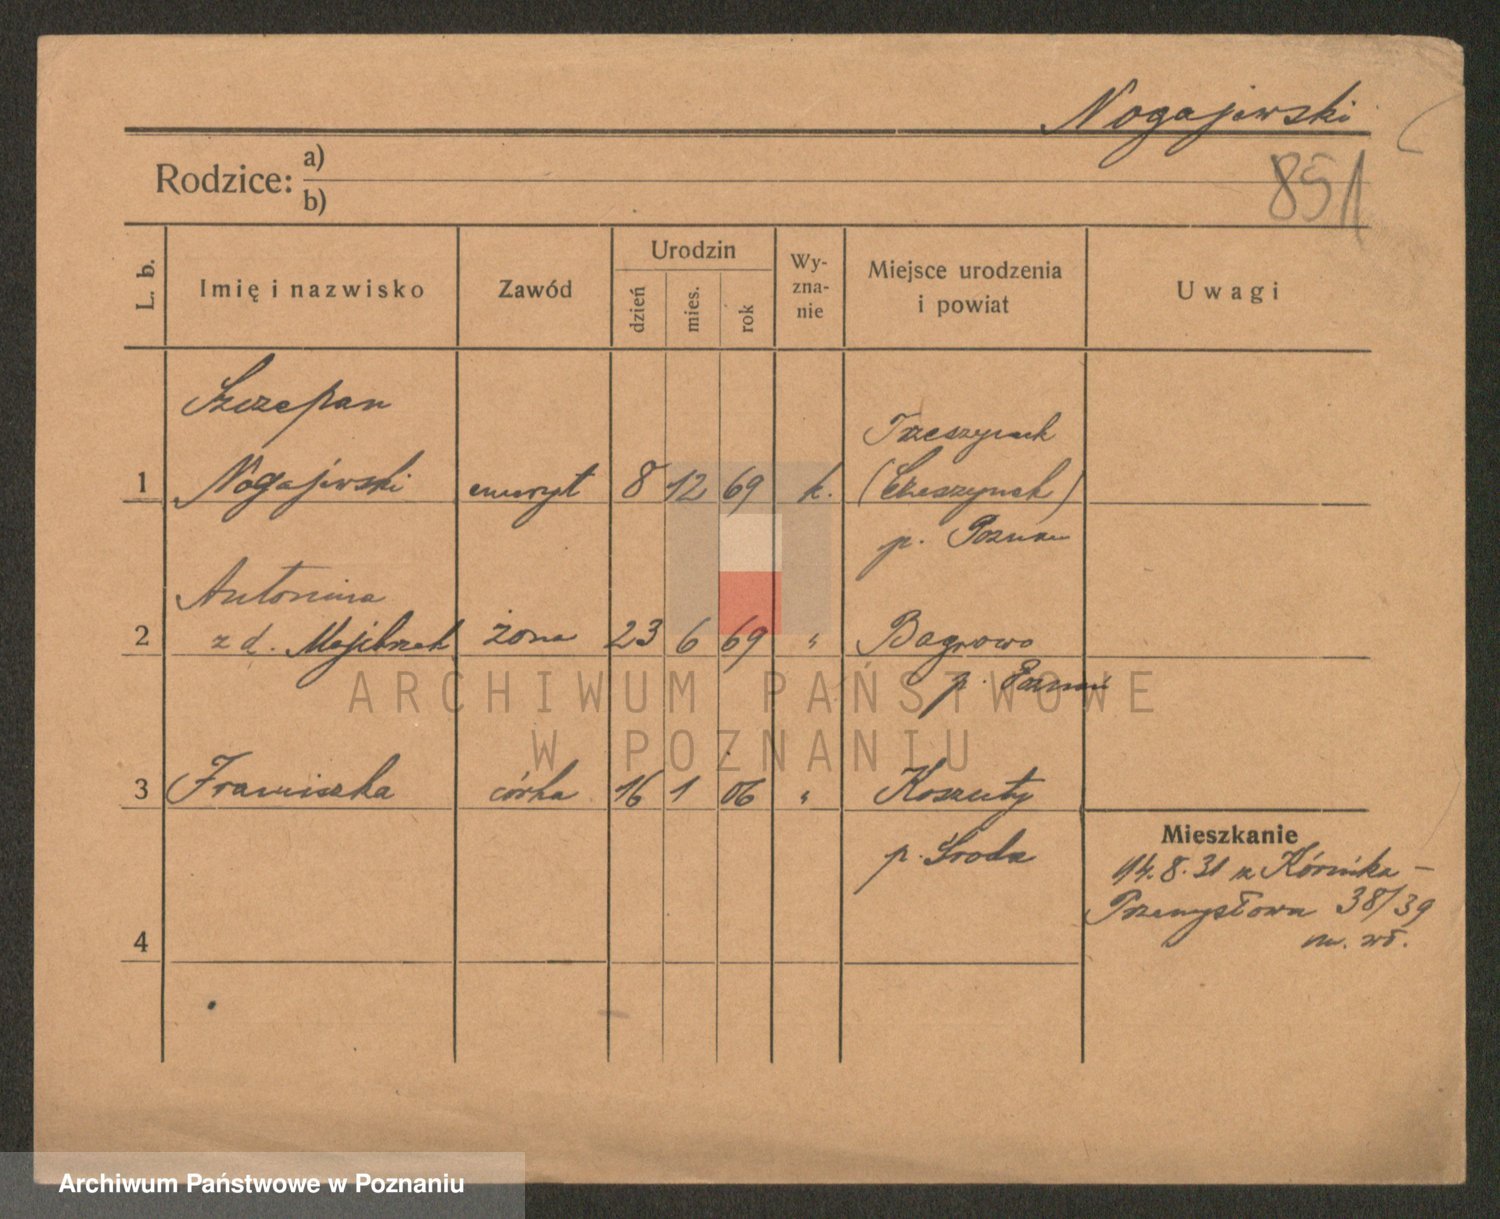 Nogajewski
851
Rodzice: a)
b)
L. b.
Imię i nazwisko
Zawód
Urodzin
dzień
mies.
rok
Wy-
zna-
nie
Miejsce urodzenia
i powiat
Uwagi
Szczepan
1 Nogajewski emeryt 8 12 69 k.
Trzeszynek
(Czeszynek)
p. Poznań
Antonina
2 z d. Majchrzak żona 23 6 69 "
Bagrowo
p. Poznań
3 Franciszka córka 16 1 06 "
Koszuty
p. Środa
4
Mieszkanie
14.8.31 z Kórnika –
Przemysłowa 38/39
m. wł.
ARCHIWUM PAŃSTWOWE
W POZNANIU
Archiwum Państwowe w Poznaniu